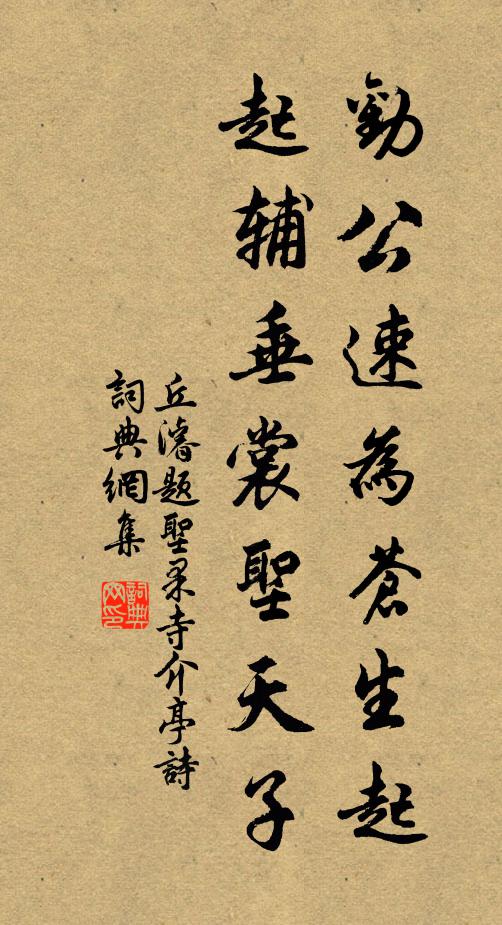 勸公速為蒼生起
起輔垂裳聖天子
丘濬題聖果寺介亭詩
詞典網集
詞典網印